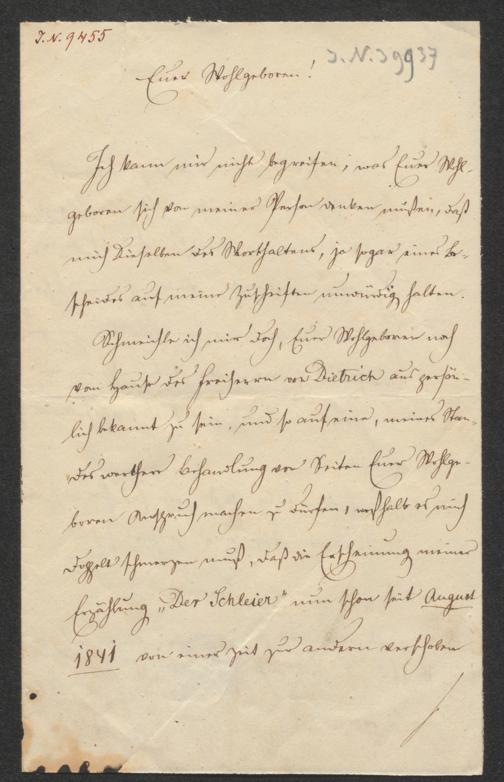 J. N. 9455
J. N. 39937
Euer Wohlgeboren!
Ich kann mir nicht begreifen, was Euer Wohl-
geboren sich von meiner Person denken müssen, daß
mich Dieselben des Worthaltens, ja sogar eines Be-
scheides auf meine Zuschriften unwürdig halten.
Schmeichle ich mir doch, Euer Wohlgeboren noch
vom Hause des Freiherrn von Dietrich aus persön-
lich bekannt zu sein, und so auf eine, meines Stan-
des werthere Behandlung von Seiten Euer Wohlge-
boren Anspruch machen zu dürfen, weßhalb es mich
doppelt schmerzen muß, daß die Erscheinung meiner
Erzählung „Der Schleier" nun schon seit August
1841 von einer Zeit zur andern verschoben